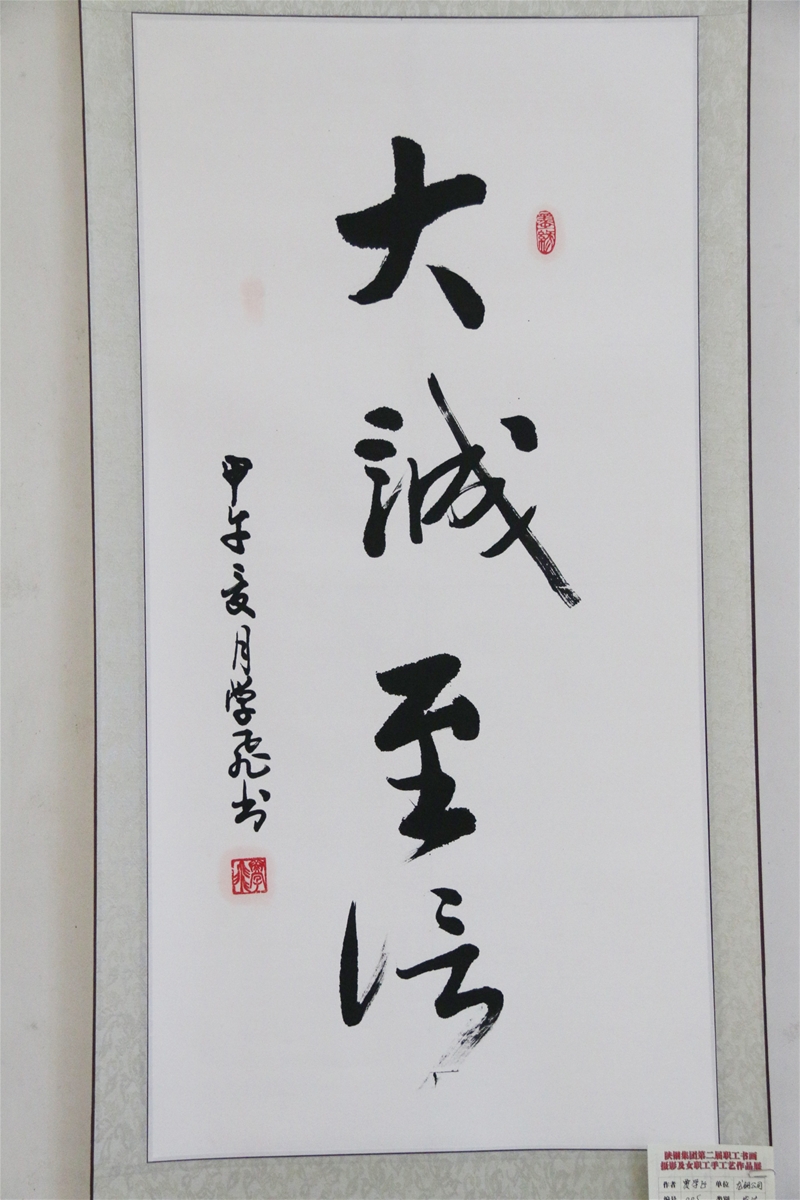 大誠至信
甲午夏月学飛书
陕钢集团第二届职工书画
摄影及女职工手工艺作品展
作者 单位
编号 类别